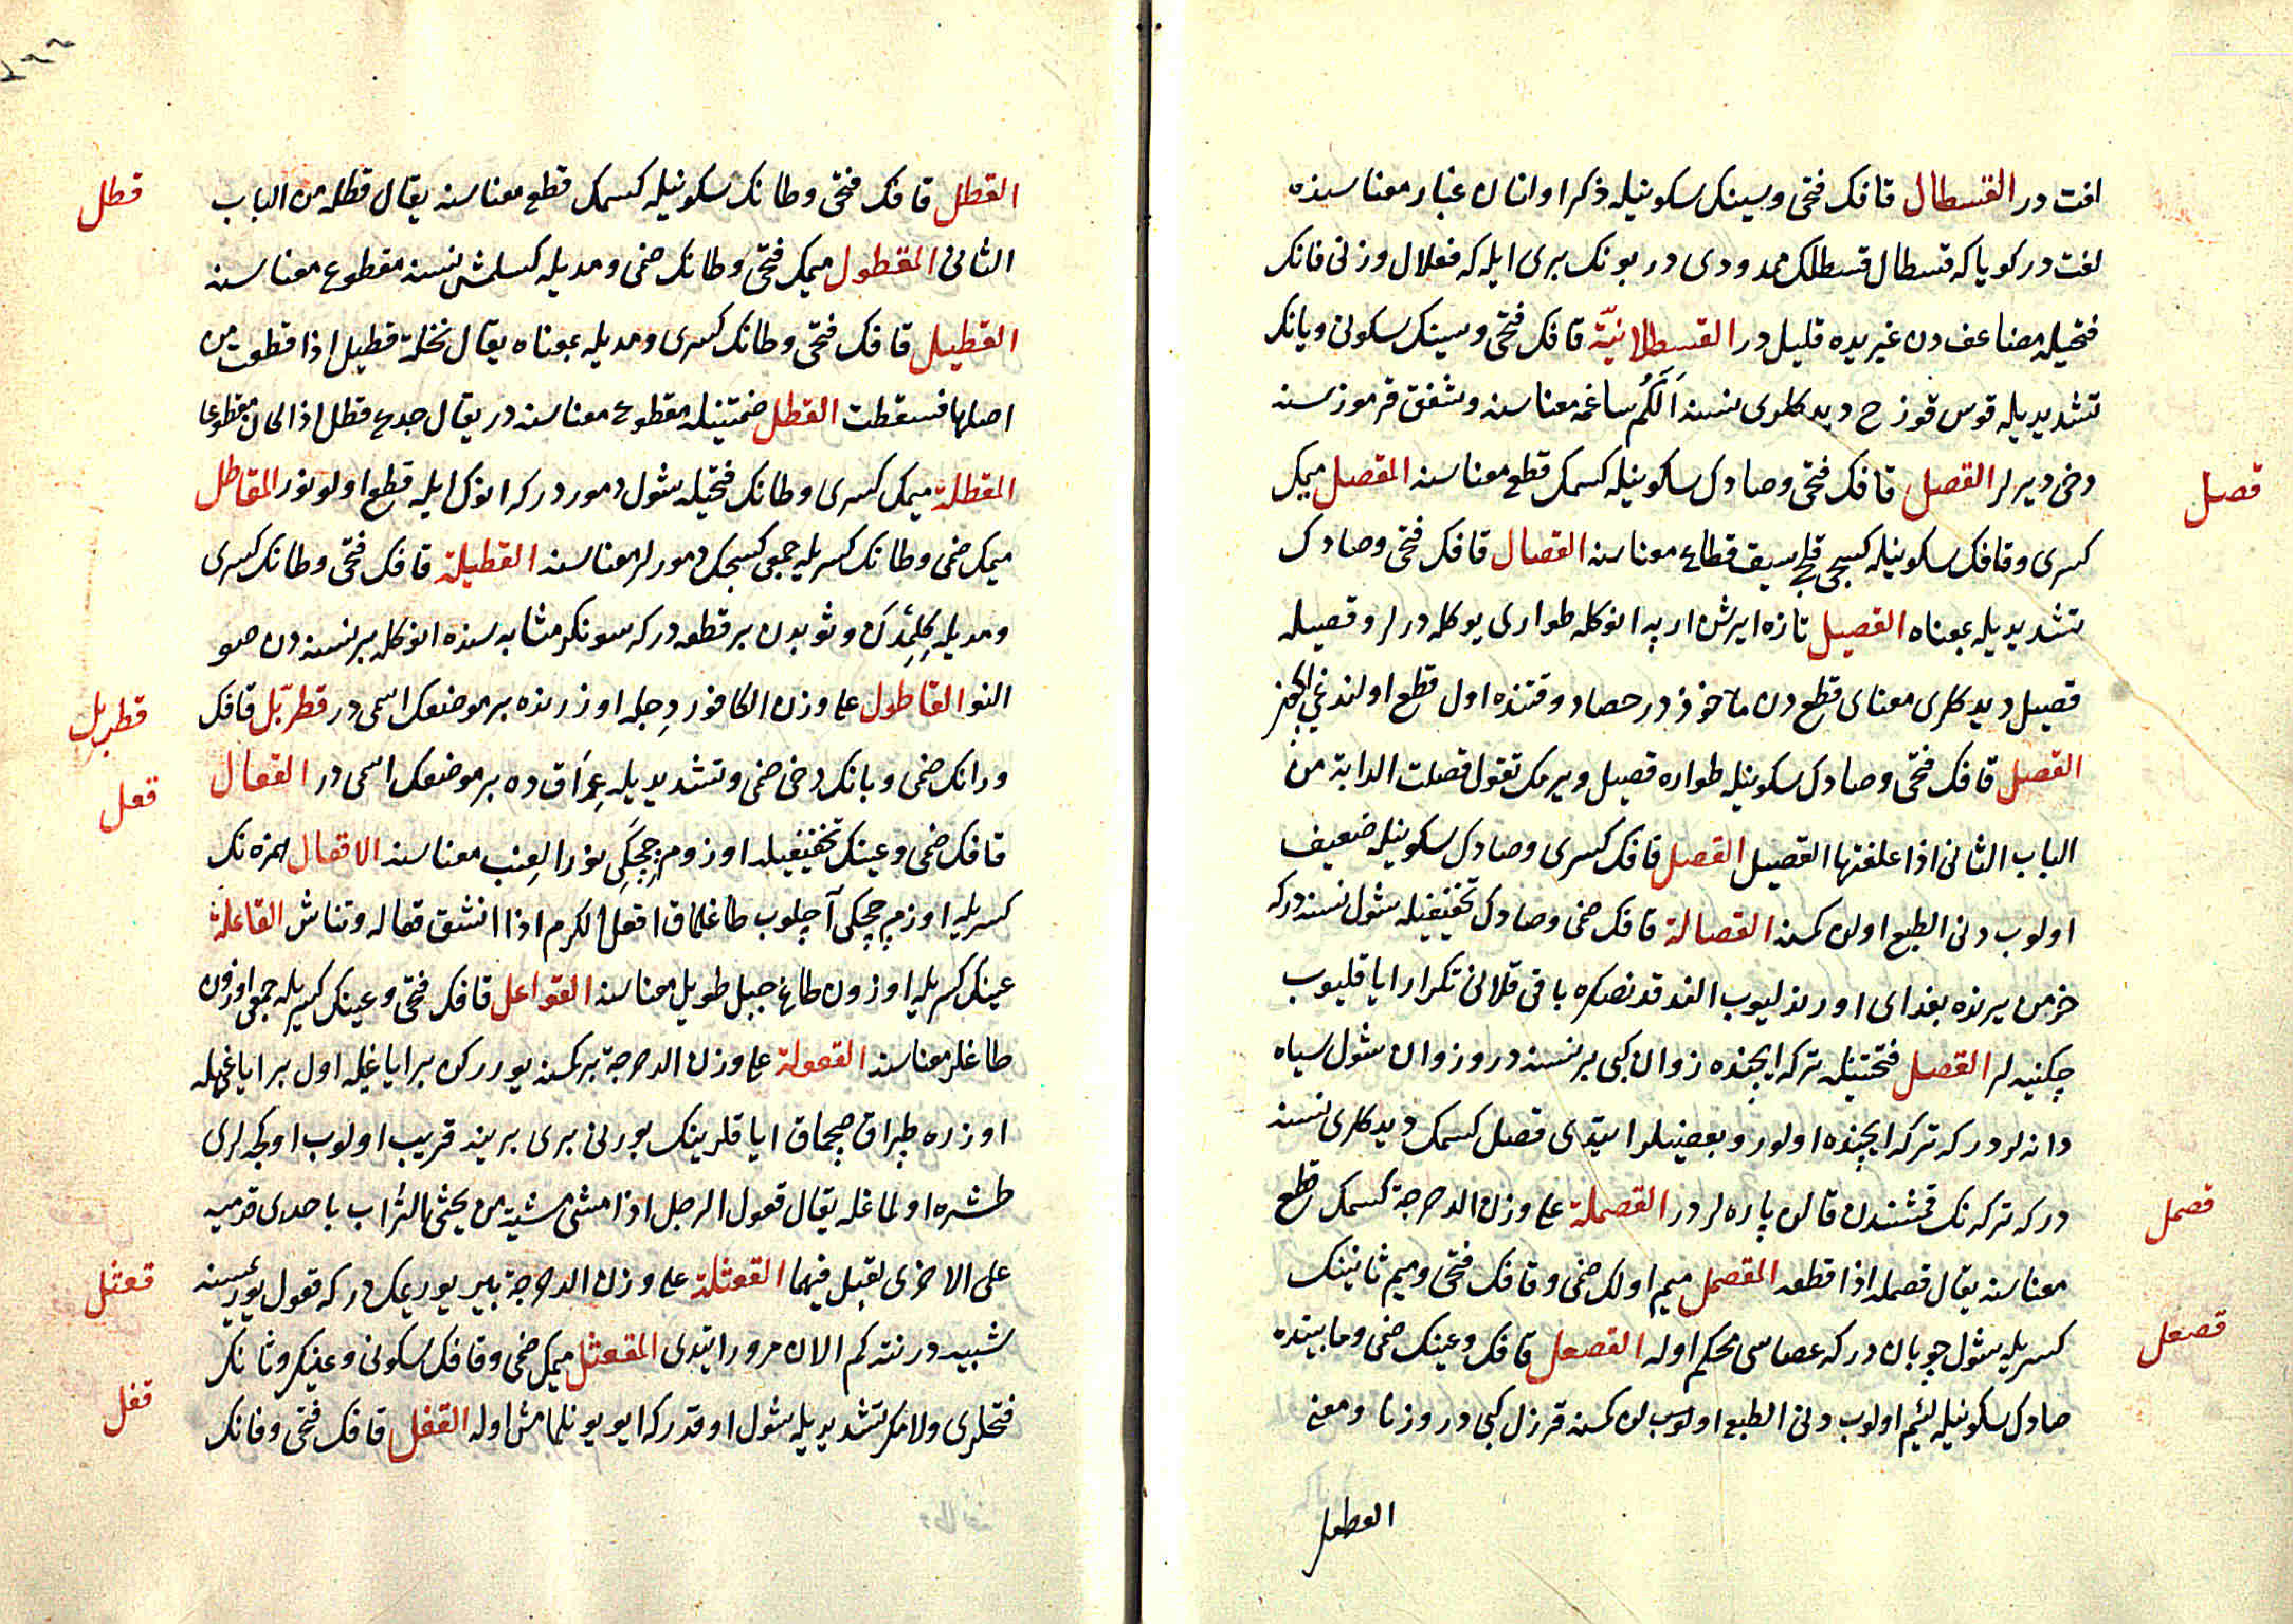 افت در القسطال قافك فتحى وسينك سكونيله ذكر اولنان غبار معناسنده
لغت در كويا كه قسطال قسطلك ممدودى در بونك برى ايله كه فعلال وزنى فانك
فتحيله مضاعف دن غيريده قليل در القسطلانيّة قافك فتحى وسينك سكونى ويانك
تشديديله قوس قوزح ديدكلرى نسنه اَلَكُم ساغمه معناسنه وشفق قرموزسنه
دخى ديرلر القصل قافك فتحى وصادك سكونيله كسمك قطع معناسنه المقصل ميمك
كسرى وقافك سكونيله كسيجى قلج سيف قطاع معناسنه القصال قافك فتحى وصادك
تشديديله بمعناه القصيل تازه ايرشن اربه انوكله طوارى يوكله درلر وقصيله
قصيل ديدكلرى معناى قطع دن ماخوذ در حصاد وقتنده اول قطع اولندغيچون
القصل قافك فتحى وصادك سكونيله طواره قصيل ويرمك تقول قصلت الدابة من
الباب الثانى اذا علفتها القصيل القصل قافك كسرى وصادك سكونيله ضعيف
اولوب دنى الطبع اولن كمسنه القصالة قافك ضمى وصادك تخفيفيله شول نسنه دركه
خرمن يرنده بغداى اورندليوب الندقدنصكره باقى قلانى تكرار اياقليوب
چكنيه لر القصل فتحتينله تركه ايچنده زوان كبى بر نسنه در وزوان شول سياه
دانه لردر كه تركه ايچنده اولور وبعضيلر ايتدى قصل كسمك ديدكلرى نسنه
دركه تركه نك قمشندن قالن پاره لردر القصملة على وزن الدحرجة كسمك قطع
معناسنه يقال قصمله اذا قطعه المقصمل ميم اولك ضمى وقافك فتحى وميم ثانينك
كسريله شول چوبان دركه عصاسى محكم اوله القصعل قافك وعينك ضمى ومابينده
صادك سكونيله لئيم اولوب دنى الطبع اولن كمسنه قرزل كبى در وزنا ومعنى
القطل
قصل
قصمل
قصعل
القطل قافك فتحى وطانك سكونيله كسمك قطع معناسنه يقال قطله من الباب
الثانى المقطول ميمك فتحى وطانك ضمى ومديله كسلمش نسنه مقطوع معناسنه
القطيل قافك فتحى وطانك كسرى ومديله بمعناه يقال نخلة قطيل اذا قطعت من
اصلها فسقطت القطل ضمتينله مقطوع معناسنه در يقال جدع قطل اذا كان مقطوعا
المقطلة ميمك كسرى وطانك فتحيله شول دمور دركه انوك ايله قطع اولونور المقاطل
ميمك ضمى وطانك كسريله جمعى كسيجك دمورلر معناسنه القطيلة قافك فتحى وطانك كسرى
ومديله كِلِيمْدَن وثوبدن بر قطعه دركه سونكر مثابه سنده انوكله بر نسنه دن صو
النو القاطول على وزن الكافور دِجله اوزرنده بر موضعك اسمى در قطربّل قافك
ورانك ضمى وبانك دخى ضمى وتشديديله عِرَاق ده بر موضعك اسمى در القعال
قافك ضمى وعينك تخفيفيله اوزوم چِچَكِى نور العِنب معناسنه الاقعال همزه نك
كسريله اوزم چچكى آچلوب طاغلمق اقعل الكرم اذا انشق قعاله وتناثر القاعلة
عينك كسريله اوزون طاغ جبل طويل معناسنه القواعل قافك فتحى وعينك كسريله جمعى اوزون
طاغلر معناسنه القعولة على وزن الدحرجة بر كمسنه يورركن بر اياغيله اول بر اياغيله
اوزره طپراق صچمق اياقلرينك بورنى برى برينه قريب اولوب اوكچه لرى
طشره اولمغله يقال قعول الرجل اذا مشى مشية من يحثى التراب باحدى قدميه
على الاخرى لقبل فيهما القعثلة على وزن الدحرجة بر يوريمك دركه قعول يوريمسنه
شبيه در نته كم الان مرور ايتدى المقعثل ميمك ضمى وقافك سكونى وعينك وثانك
فتحلرى ولامك تشديديله شول اوقدر كه ايو يونلمامش اوله القفل قافك فتحى وفانك
قطل
قطربل
قعل
قعثل
قفل